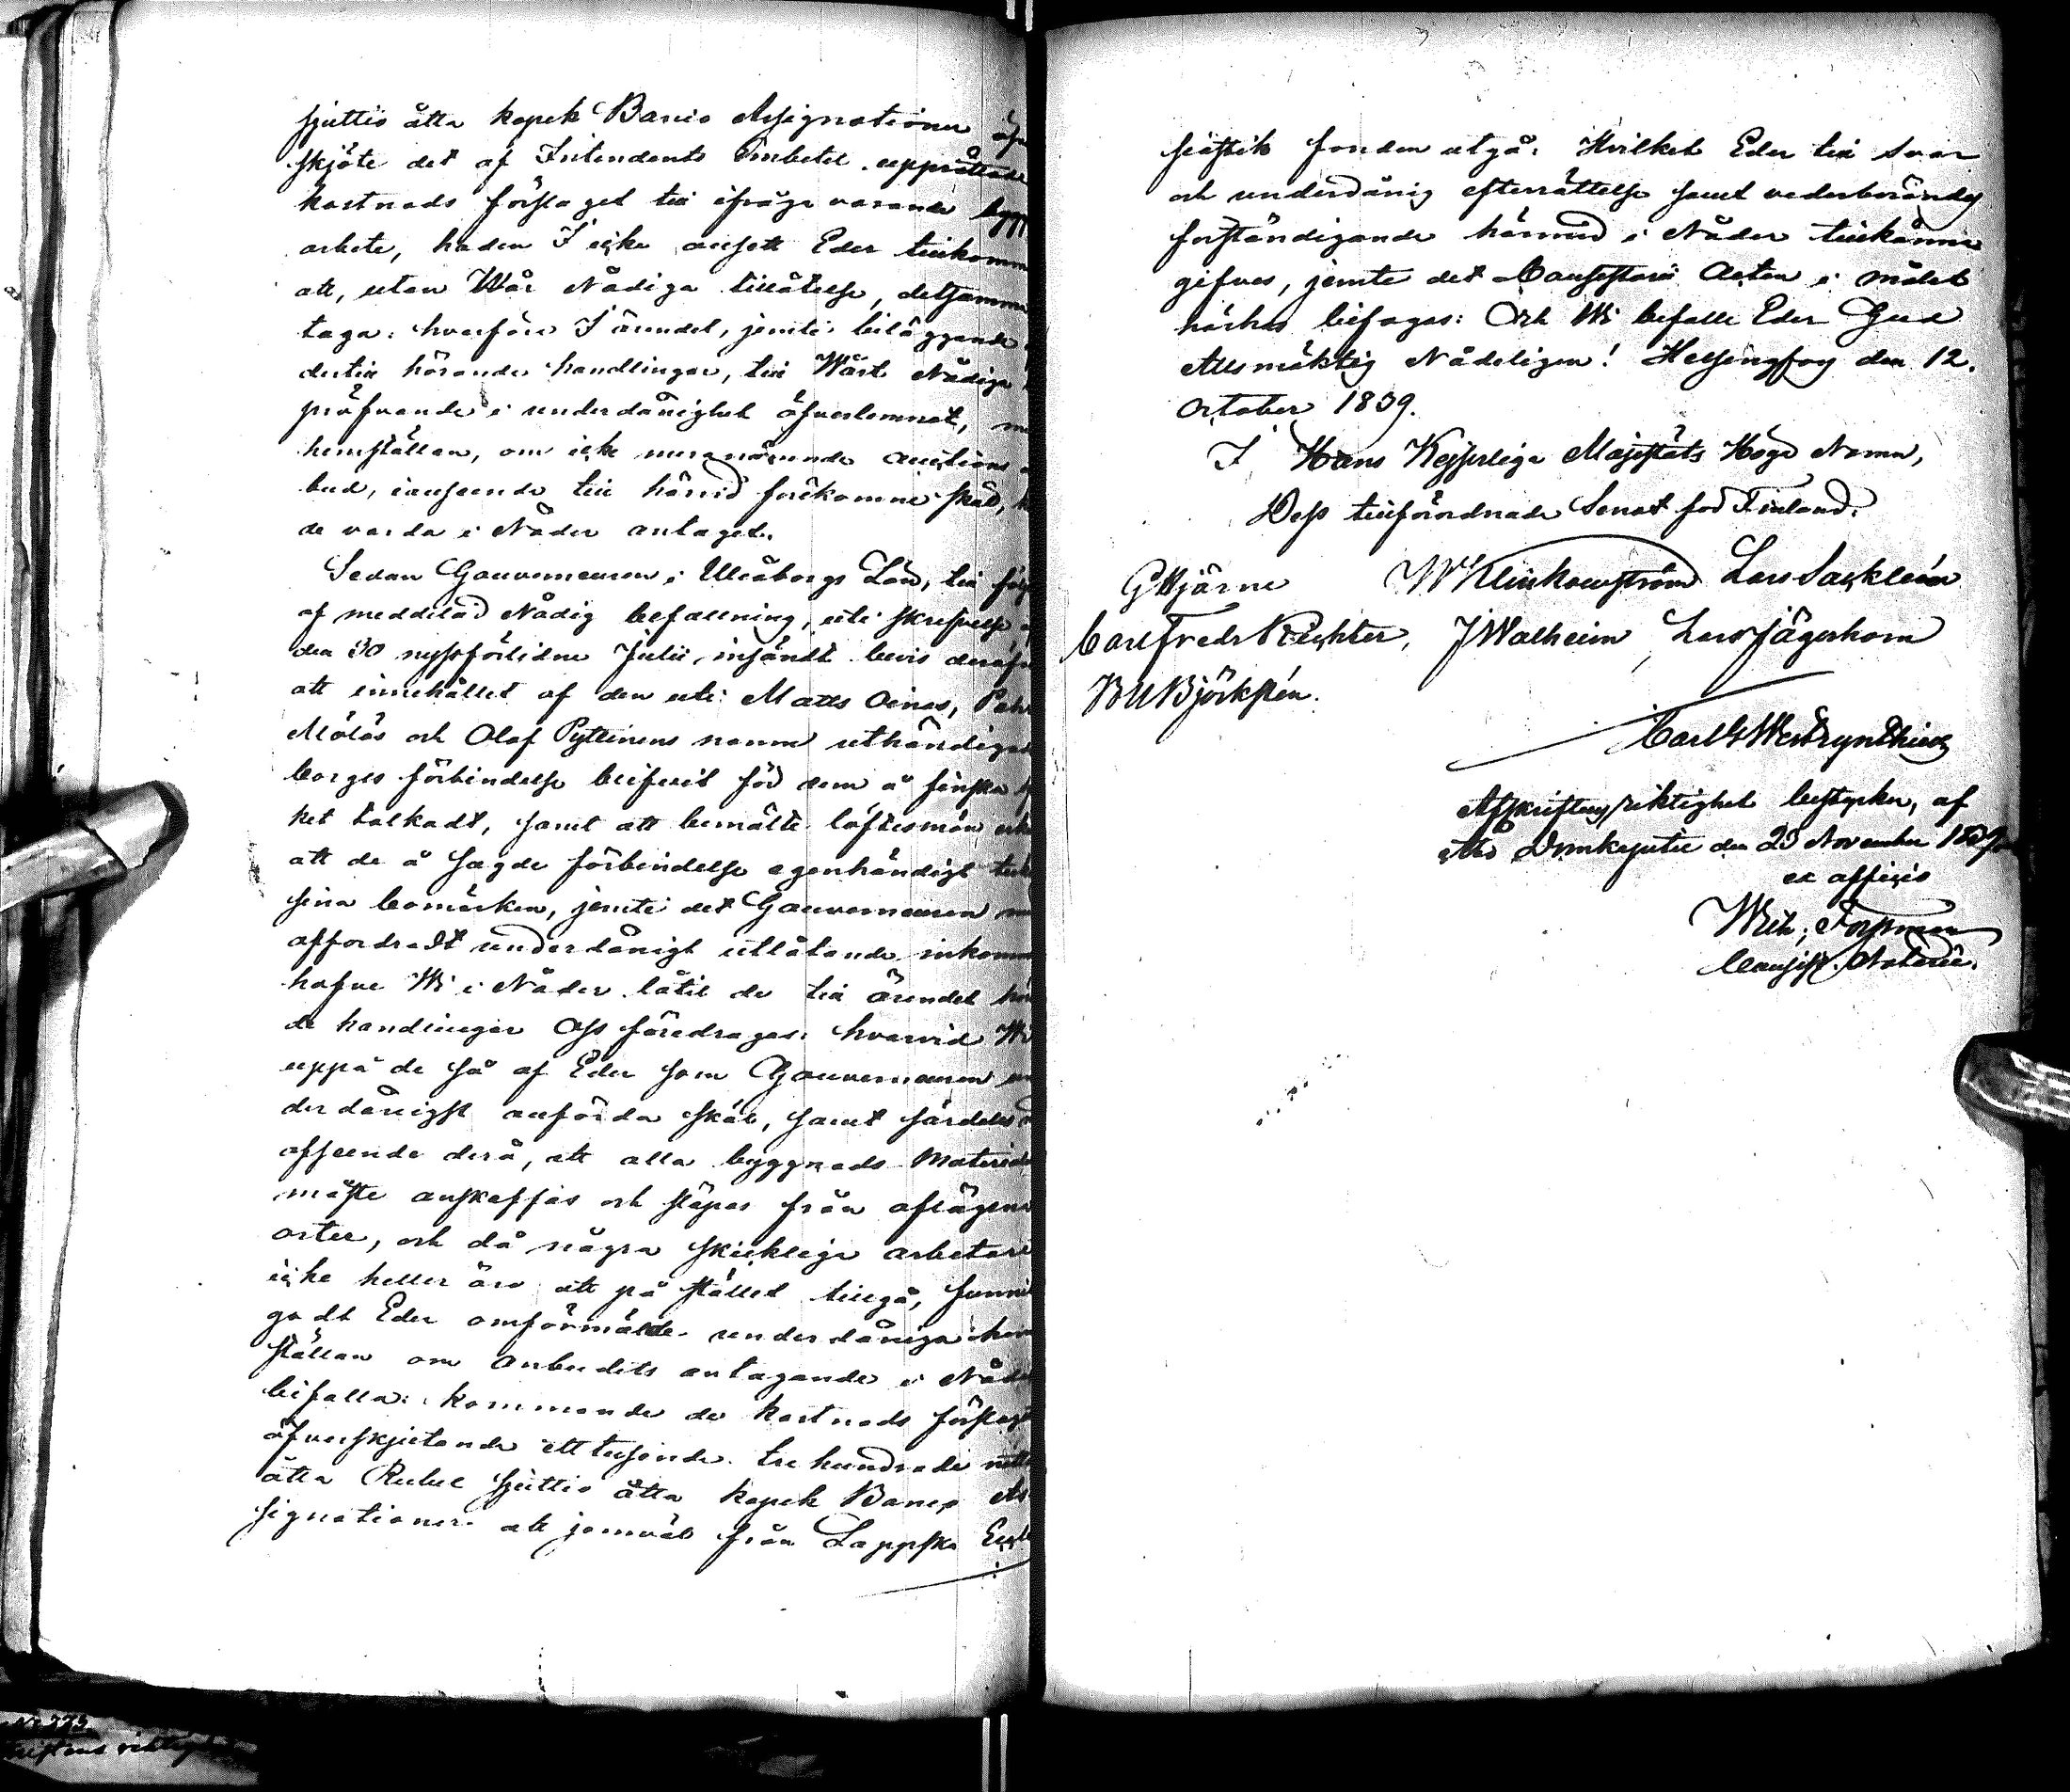 sjuttio åtta kopek Banco Assignationer öfver
skjöte det af Intendents Embetet upprättade
kostnads förslaget till ifråga varande bygg
arbete, haden I icke ansett Eder tillkomma
att, utan Wår Nådiga tillåtelse, detsamma
taga: hvarföre I ärendet, jemte biläggande
dertill hörande handlingar, till Wårt Nådiga
pröfvande i underdånighet öfverlemnat, m
hemställan, om icke meranämnde auctions
bud, i anseende till härvid förekomne skäl,
de varda i Nåder antaget.
Sedan Gouverneuren i Uleåborgs Län, till följe
af meddelad Nådig befallning, uti skrifvelse
den 30 nyssförlidne Julii, insändt bevis deröfver
att innehållet af den uti Matts Oinas,
Mölös och Olof Pyttinens namn uthändigade
borges förbindelse blifvit för dem å finska
ket tolkadt, samt att bemälte löftesmän
att de å sagde förbindelse egenhändigt
sina bomärken, jemte det Gouverneuren
affordradt underdånigt utlåtande inkommit
hafve Wi i Nåder låtit de till ärendet
de handlingar Oss föredragas: hvarvid Wi
uppå de så af Eder som Gouverneuren un
derdånigst anförda skäl, samt särdeles
afseende derå, att alla byggnads Materialier
måste anskaffas och släpas från aflägsna
orter, och då några skicklige arbetare
icke heller äro att på stället tillgå, funnit
godt Eder omförmälde underdåniga hem
ställan om anbudets antagande i Nåder
bifalla: kommande de kostnads förslaget
öfverskjutande ett tusende tre hundrade nittio
åtta Rubel sjuttio åtta kopek Banco As
signationer att jemväl från Lappska Eccle
siastik fonden utgå. Hvilket Eder till svar
och underdånig efterrättelse samt vederbörandes
förständigande härmed i Nåder tillkänna
gifves, jemte det Consistorii Acten i målet
härhos bifogas: Och Wi befalle Eder Gud
Allsmäktig Nådeligen! Helsingfors den 12.
October 1839.
I Hans Kejserliga Majestäts Höga Namn,
Dess tillförordnade Senat för Finland.
G Hjärne W Klinkowström Lars Sacklein
Carl Fredr Richter, J Walheim, Lars Jägerhorn
B U Björkstén.
Carl G Westrynthius
Afskriftens riktighet bestyrker, af
Åbo Domkapitel den 25 November 1839
ex officio
Wilh. Forssman
Consist. Notarie.